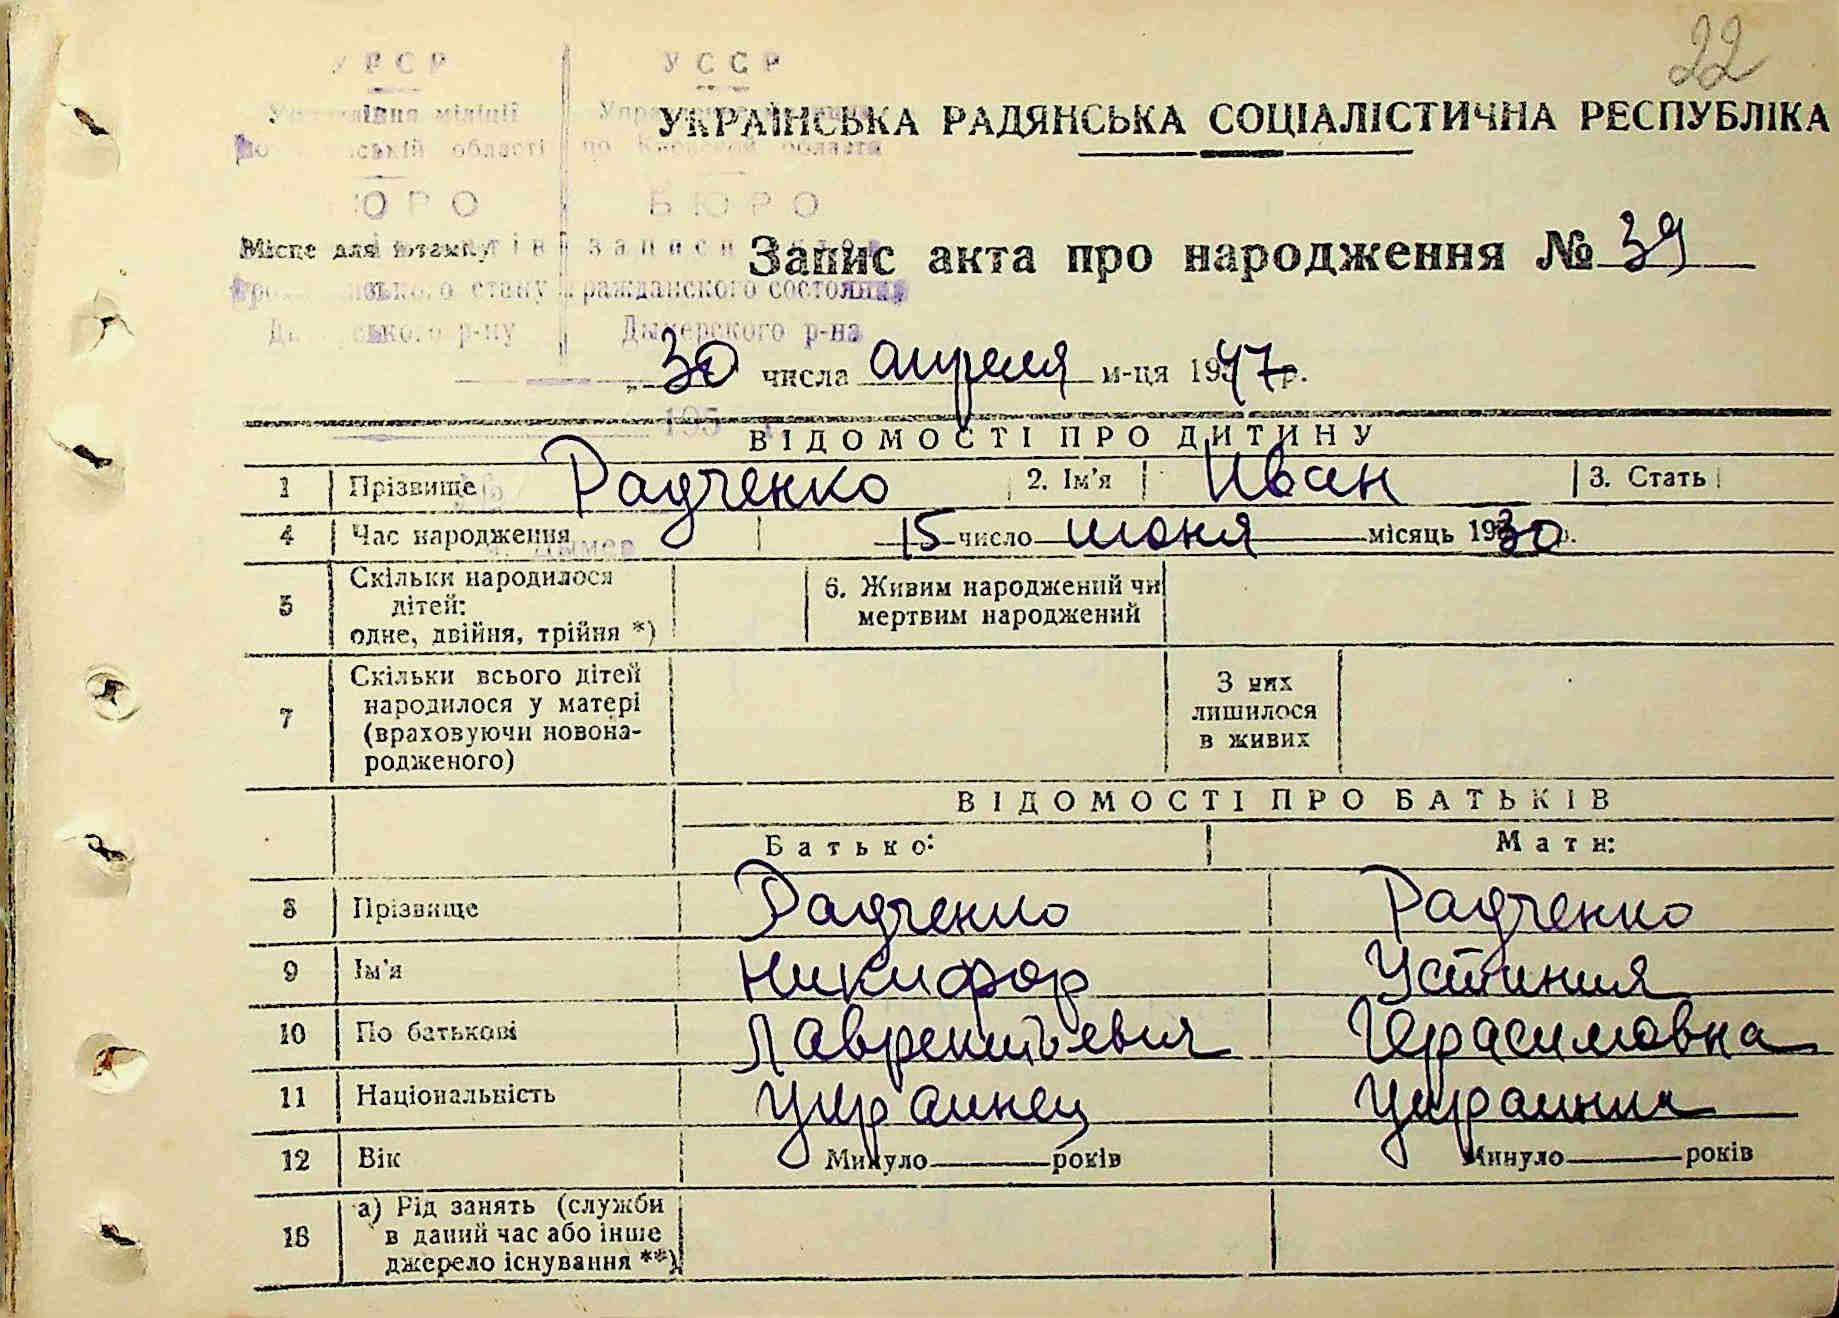 22
УРСР УССР
Управління міліції Управление
області по Киевской области
БЮРО БЮРО
УКРАЇНСЬКА РАДЯНСЬКА СОЦІАЛІСТИЧНА РЕСПУБЛІКА
Місце для штампу записи
стану гражданского состояния
р-ну Дымерского р-на
Запис акта про народження № 39
„ 30 числа апреля м-ця 1947 р.
195
ВІДОМОСТІ ПРО ДИТИНУ
1 Прізвище Радченко 2. Ім'я Иван 3. Стать
4 Час народження 15 число июня місяць 1930 р.
м. Дымер
5 Скільки народилося
дітей:
одне, двійня, трійня *)
6. Живим народжений чи
мертвим народжений
7 Скільки всього дітей
народилося у матері
(враховуючи новона-
родженого)
З них
лишилося
в живих
ВІДОМОСТІ ПРО БАТЬКІВ
Батько: Мати:
8 Прізвище Радченко Радченко
9 Ім'я Никифор Устиния
10 По батькові Лаврентьевич Герасимовна
11 Національність Украинец Украинка
12 Вік Минуло років Минуло років
13 а) Рід занять (служби
в даний час або інше
джерело існування **)